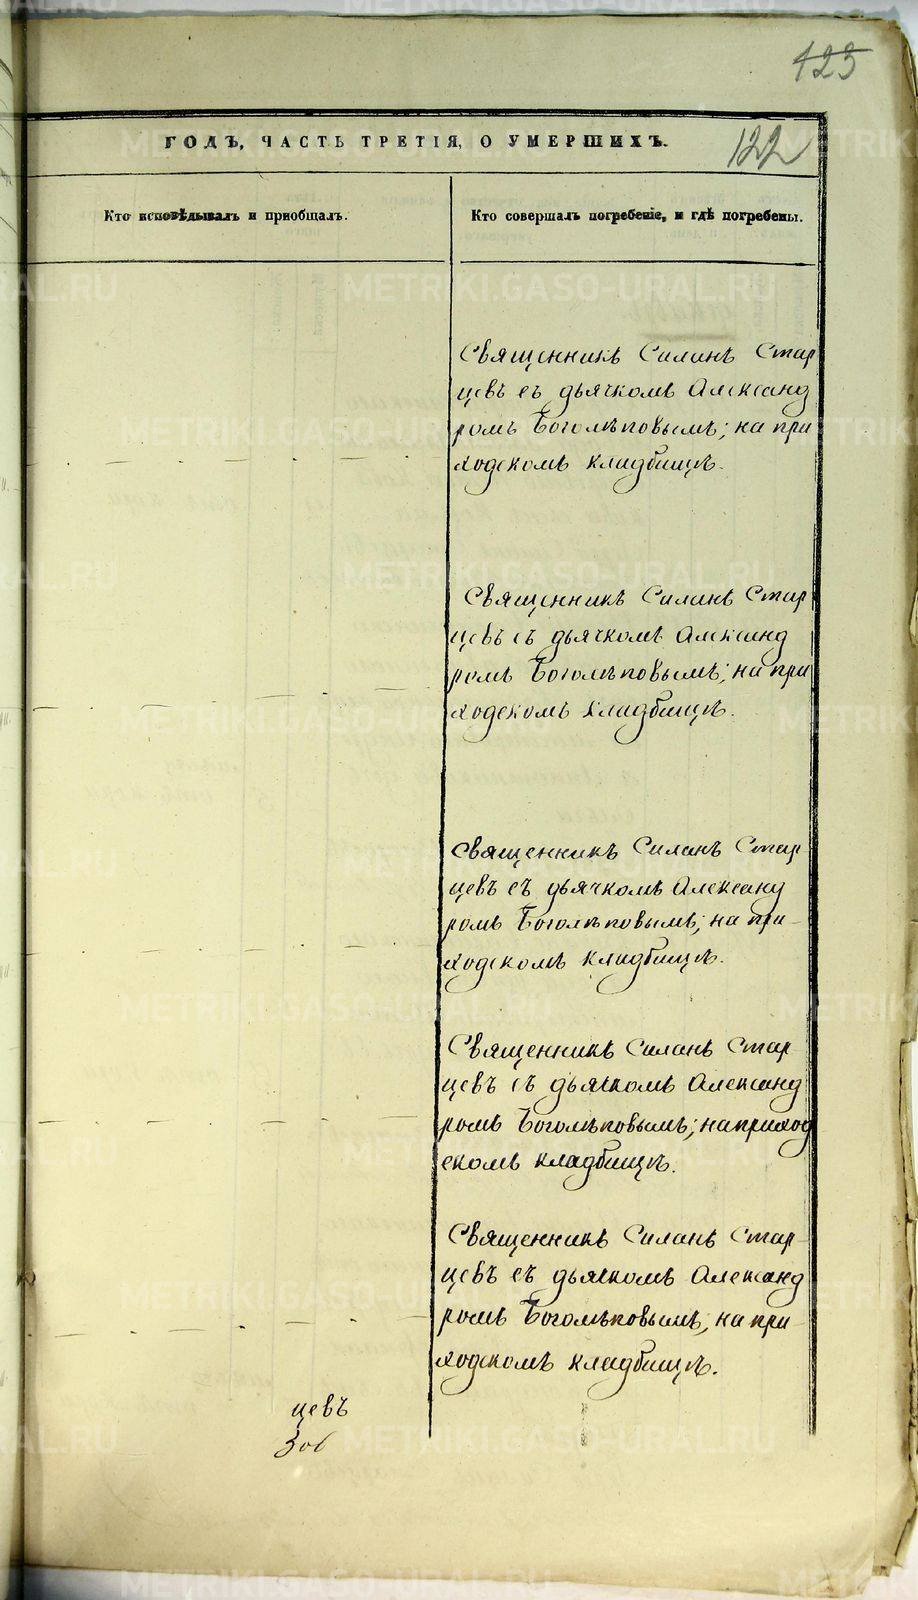 123
ГОДЪ, ЧАСТЬ ТРЕТІЯ, О УМЕРШИХЪ.
122
Кто исповѣдывалъ и пріобщалъ.
Кто совершалъ погребеніе, и гдѣ погребены.
Священникъ Силинъ Стар
цевъ съ дьячкомъ Александ
ромъ Боголѣповымъ; на при
ходскомъ кладбищѣ.
Священникъ Силинъ Стар
цевъ съ дьячкомъ Александ
ромъ Боголѣповымъ; на при
ходскомъ кладбищѣ.
Священникъ Силанъ Стар
цевъ съ дьячкомъ Александ
ромъ Боголѣповымъ; на при-
ходскомъ кладбищѣ.
Священникъ Силанъ Стар
цевъ съ дьячкомъ Александ
ромъ Боголѣповымъ; на приход
скомъ кладбищѣ.
Священникъ Силанъ Стар-
цевъ съ дьячкомъ Александ
ромъ Боголѣповымъ, на при-
ходскомъ кладбищѣ.
цевъ
METRIKI.GASO-URAL.RU